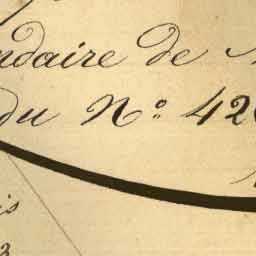 ndaire de
du N° 42
is
3